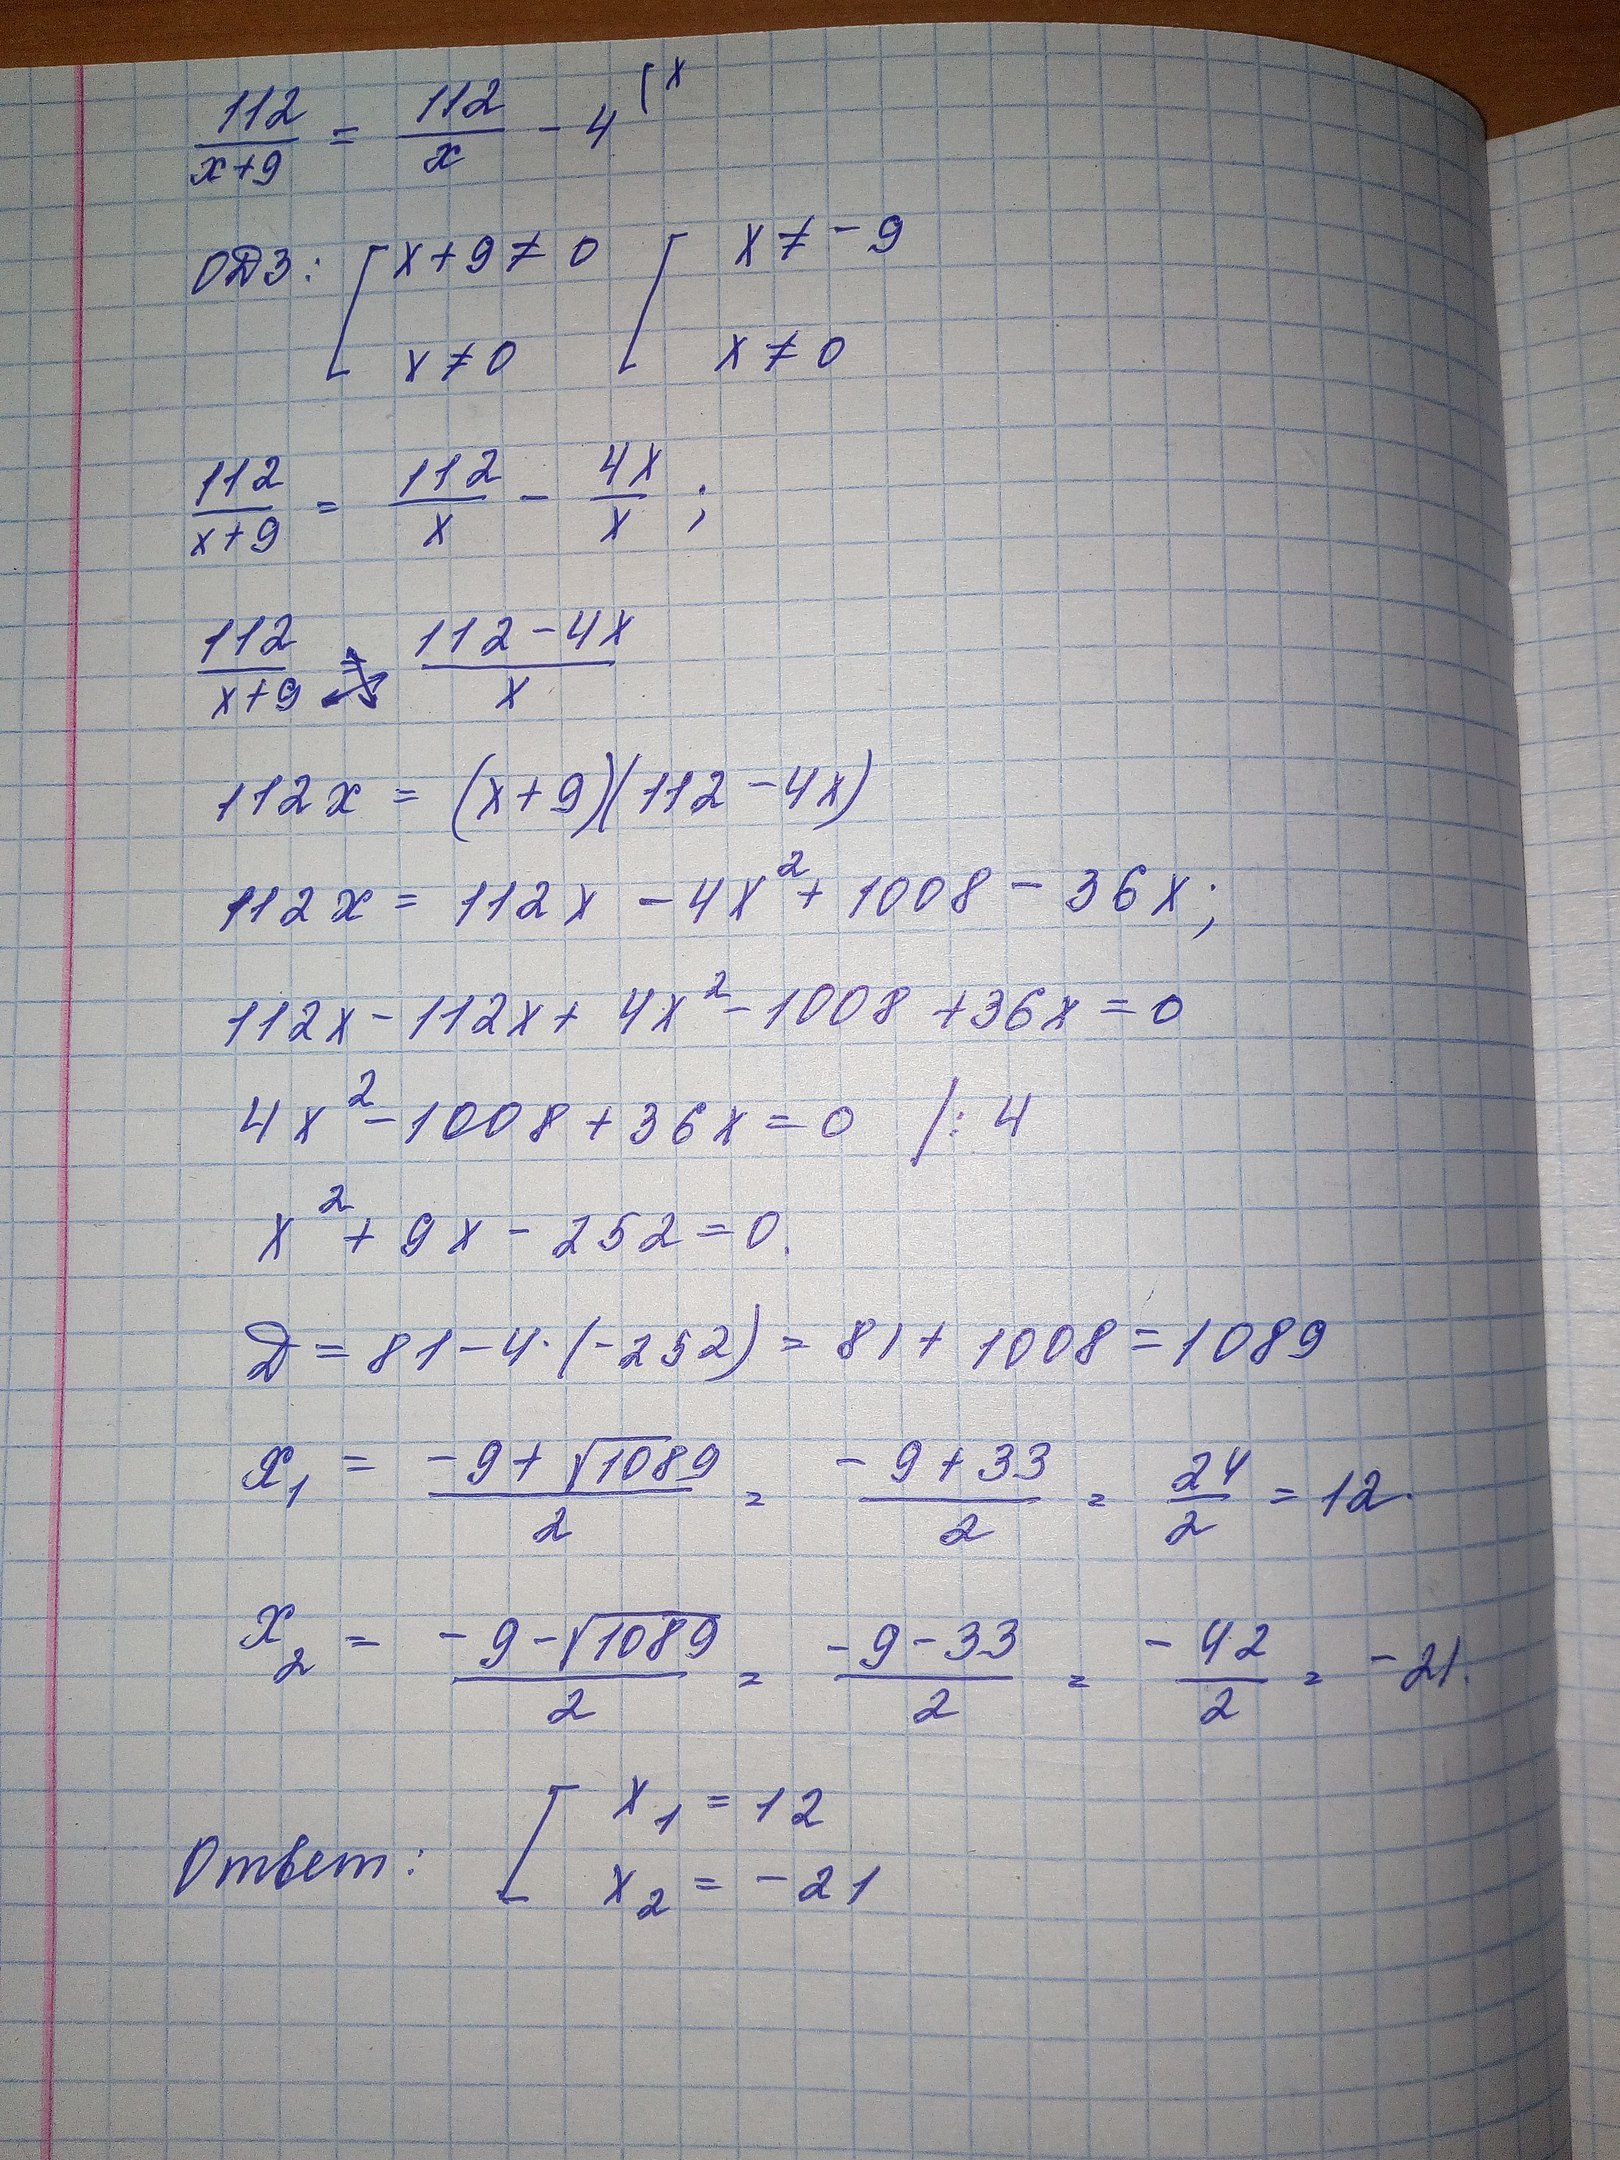 112/(x+9) = 112/x - 4 (x
ОДЗ: [ x+9≠0 [ x≠-9
x≠0 x≠0
112/(x+9) = 112/x - 4x/x ;
112/(x+9) = (112-4x)/x
112x = (x+9)(112-4x)
112x = 112x - 4x² + 1008 - 36x;
112x - 112x + 4x² - 1008 + 36x = 0
4x² - 1008 + 36x = 0 /: 4
x² + 9x - 252 = 0.
Д = 81 - 4·(-252) = 81 + 1008 = 1089
x₁ = (-9+√1089)/2 = (-9+33)/2 = 24/2 = 12.
x₂ = (-9-√1089)/2 = (-9-33)/2 = -42/2 = -21.
Ответ: [ x₁ = 12
x₂ = -21